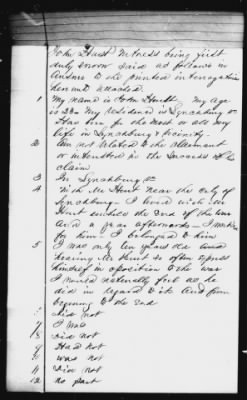 John Hurt Witness being first
duly sworn said as follows in
answer to the printed interrogatories
hereunto attached.
1 My name is John Hurt. My age
is 23 My residence is Lynchburg Va
Has been for the most or all my
life in Lynchburg & vicinity.
2 Am not related to the claimant
or interested in the success of the
claim
3 In Lynchburg Va
4 With Mr Hurt near the City of
Lynchburg - I lived with Mr
Hurt until the end of the war
and a year afterwards - I
by him - I belonged to him
5 I was only ten years old and
hearing Mr Hurt so often express
himself in oposition to the war
I would naturally feel as he
did in regard to it and from
begining to the end
6 Did not
7 I was
8 Did not
9 Had not
10 was not
11 Did not
12 no part